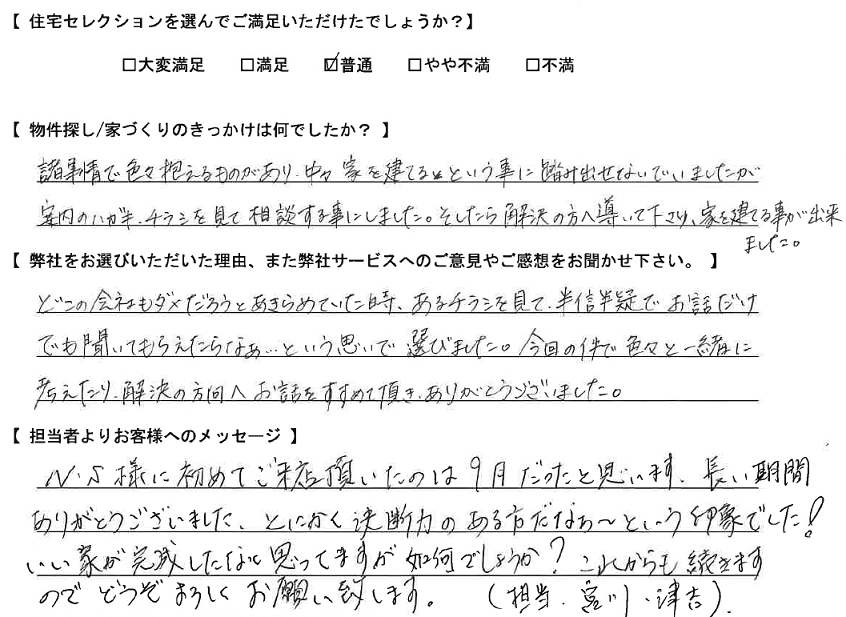 【 住宅セレクションを選んでご満足いただけたでしょうか？】
□大変満足 □満足 ☑普通 □やや不満 □不満
【 物件探し/家づくりのきっかけは何でしたか？ 】
諸事情で色々抱えるものがあり、中々 家を建てる。という事に踏み出せないでいましたが
案内のハガキ、チラシを見て相談する事にしました。そしたら解決の方へ導いて下さり、家を建てる事が出来
ました。
【 弊社をお選びいただいた理由、また弊社サービスへのご意見やご感想をお聞かせ下さい。 】
どこの会社もダメだろうとあきらめていた時、あるチラシを見て、半信半疑でお話だけ
でも聞いてもらえたらなぁ…という思いで選びました。今回の件で色々と一緒に
考えたり、解決の方向へお話をすすめて頂き、ありがとうございました。
【 担当者よりお客様へのメッセージ 】
N・S様に初めてご来店頂いたのは9月だったと思います、長い期間
ありがとうございました、とにかく決断力のある方だなぁ〜という印象でした！
いい家が完成したなと思ってますが如何でしょうか？これからも続きます
のでどうぞよろしくお願い致します。（担当、宮川、津吉）.